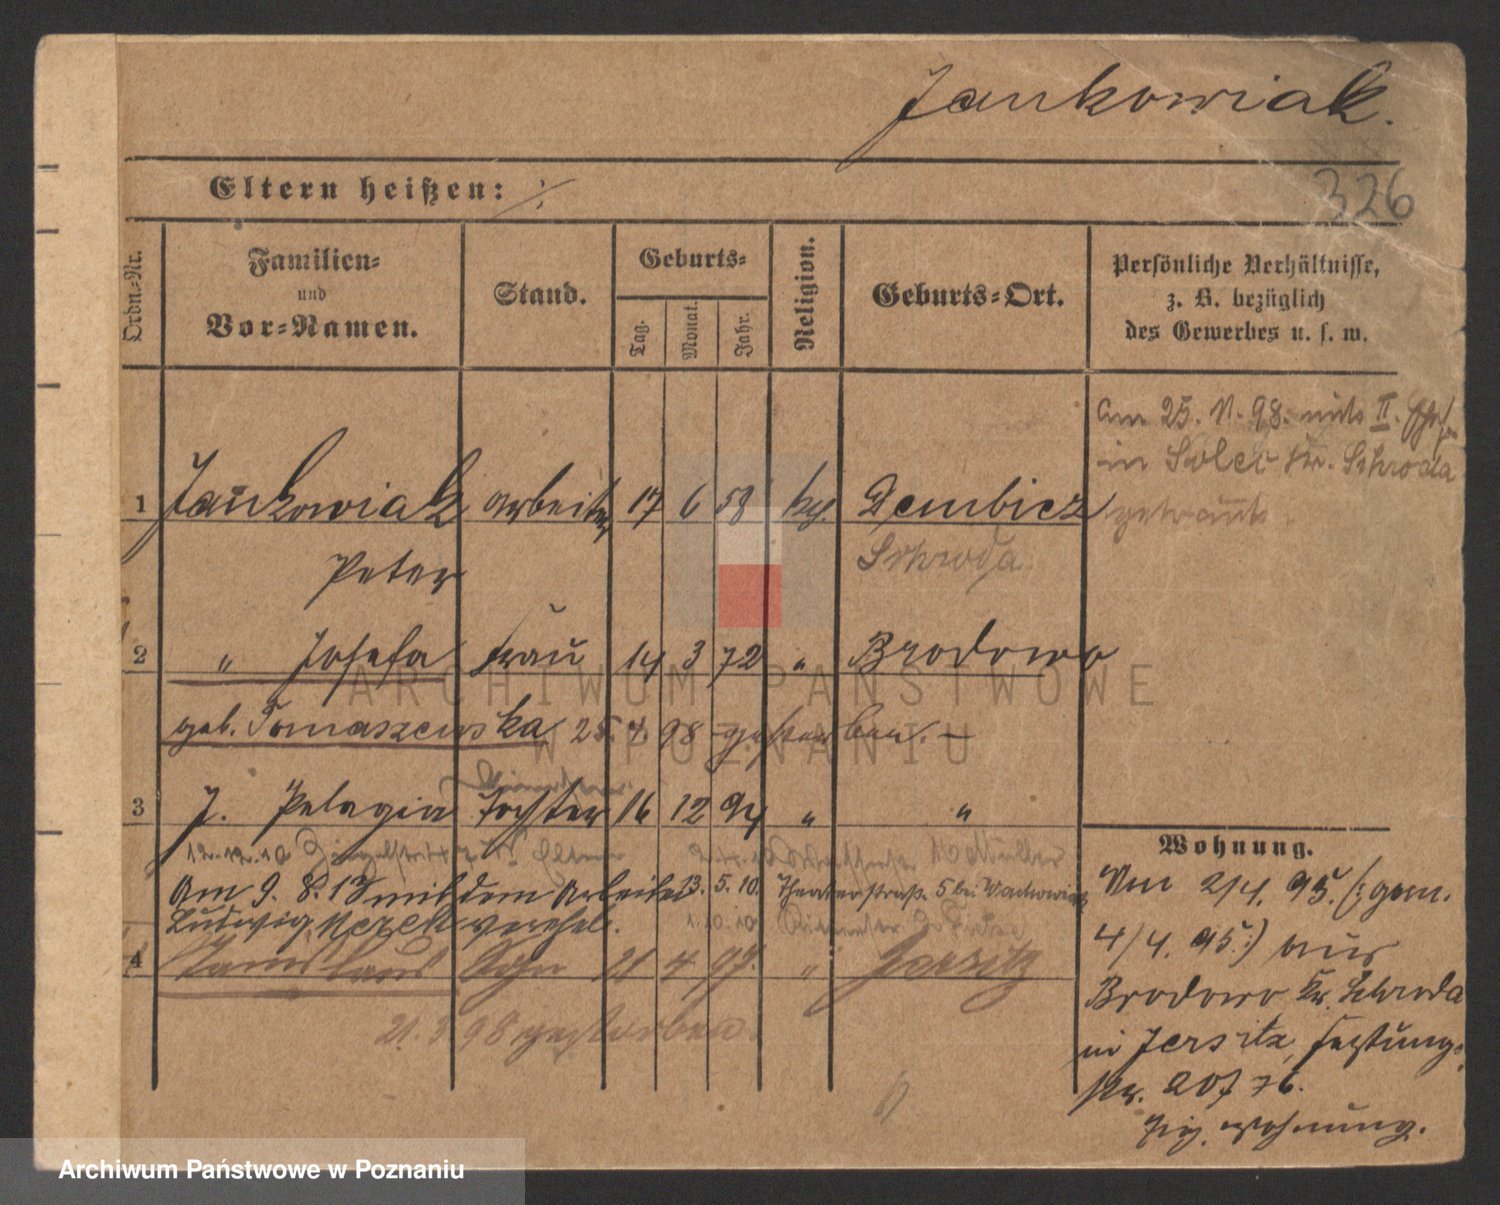 Jankowiak.
326
Eltern heißen: ./.
Ordn.-Nr.
Familien-
und
Vor-Namen.
Stand.
Geburts-
Tag.
Monat.
Jahr.
Religion.
Geburts-Ort.
Persönliche Verhältnisse,
z. B. bezüglich
des Gewerbes u. s. w.
am 25. V. 98. mit II.
in Solec Kr. Schroda
getraut.
1 Jankowiak Arbeiter 17 6 58 kf. Dembicz
Peter Schroda
2 " Josefa Frau 14 3 72 " Brodowo
geb. Tomaszewska 25. 4. 98 gestorben. —
3 J. Pelagia Tochter 16 12 94 " "
12.12.10
Am 9. 8. 13 mit dem Arbeiter 13. 5. 10. Theaterstraß. 5 bei
Ludwig verehel.
4 Stanislaus Sohn 21 4 97. " Jersitz
21. 3 98 gestorben.
Wohnung.
Am 2/4. 95. (: gem.
4/4. 95 :) aus
Brodowo Kr. Schroda
in Jersitz, Festung-
str. 76.
Wohnung.
ARCHIWUM PAŃSTWOWE
W POZNANIU
Archiwum Państwowe w Poznaniu